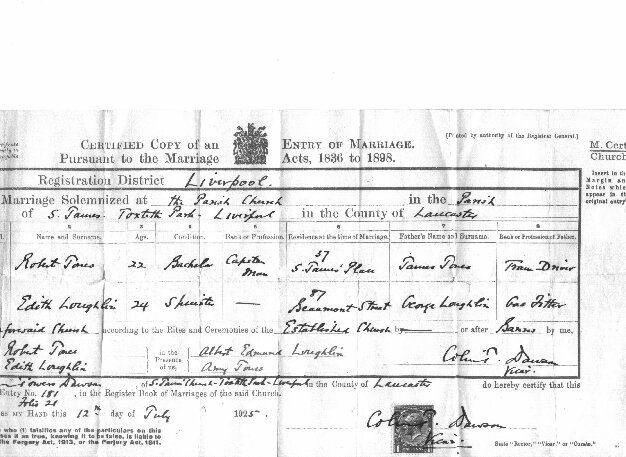 [Printed by authority of the Registrar General.]
CERTIFIED COPY of an ENTRY OF MARRIAGE. M. Cert
Pursuant to the Marriage Acts, 1836 to 1898. Church
Registration District Liverpool.
Insert in th
Margin an
Notes whic
appear in th
original entry
Marriage Solemnized at the Parish Church in the Parish
of S. James Toxteth Park - Liverpool in the County of Lancaster
2 3 4 5 6 7 8
Name and Surname. Age. Condition. Rank or Profession. Residence at the time of Marriage. Father's Name and Surname. Rank or Profession of Father.
Robert Jones 22 Bachelor Capstan Man 57 S. James' Place James Jones Tram Driver
Edith Loughlin 24 Spinster — 87 Beaumont Street George Loughlin Gas Fitter
aforesaid Church according to the Rites and Ceremonies of the Established Church by — or after Banns by me,
Robert Jones
Edith Loughlin
in the Presence of us,
Albert Edmund Loughlin
Amy Jones
Dawson
Vicar.
Dawson, of S. James Church - Toxteth Park - Liverpool in the County of Lancaster do hereby certify that this
Entry No. 181, in the Register Book of Marriages of the said Church.
Folio 21
ess my Hand this 12th day of July 1925.
Dawson
Vicar
State "Rector," "Vicar," or "Curate."
who (1) falsifies any of the particulars on this
ses it as true, knowing it to be false, is liable to
the Forgery Act, 1913, or the Perjury Act, 1911.